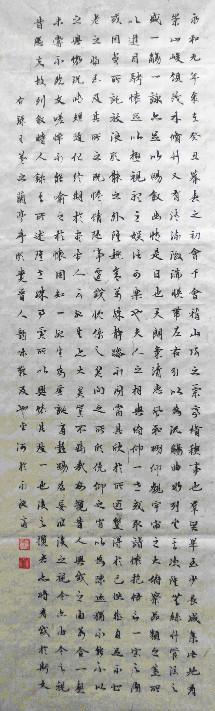 永和九年歲在癸丑暮春之初會于會稽山陰之蘭亭脩禊事也群賢畢至少長咸集此地有
崇山峻領茂林脩竹又有清流激湍暎帶左右引以為流觴曲水列坐其次雖無絲竹管弦之
盛一觴一詠亦足以暢敘幽情是日也天朗氣清惠風和暢仰觀宇宙之大俯察品類之盛所
以遊目騁懷足以極視聽之娛信可樂也夫人之相與俯仰一世或取諸懷抱悟言一室之內
或因寄所託放浪形骸之外雖趣舍萬殊靜躁不同當其欣於所遇暫得於己快然自足不知
老之將至及其所之既惓情隨事遷感慨係之矣向之所欣俛仰之間以為陳迹猶不能不以
之興懷況脩短隨化終期於盡古人云死生亦大矣豈不痛哉每攬昔人興感之由若合一契
未嘗不臨文嗟悼不能喻之於懷固知一死生為虛誕齊彭殤為妄作後之視今亦由今之視
昔悲夫故列敘時人錄其所述雖世殊事異所以興懷其致一也後之攬者亦將有感於斯文
右錄王羲之蘭亭序